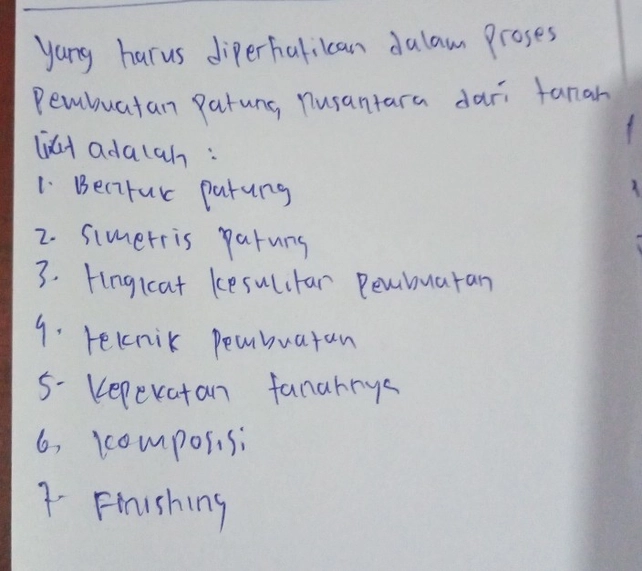 yang harus diperhatikan dalam proses
pembuatan patung nusantara dari tanah
liat adalah :
1. Bentuk patung
2. simetris patung
3. tingkat kesulitan pembuatan
4. teknik pembuatan
5- kepekatan tanahnya
6, komposisi
7- Finishing